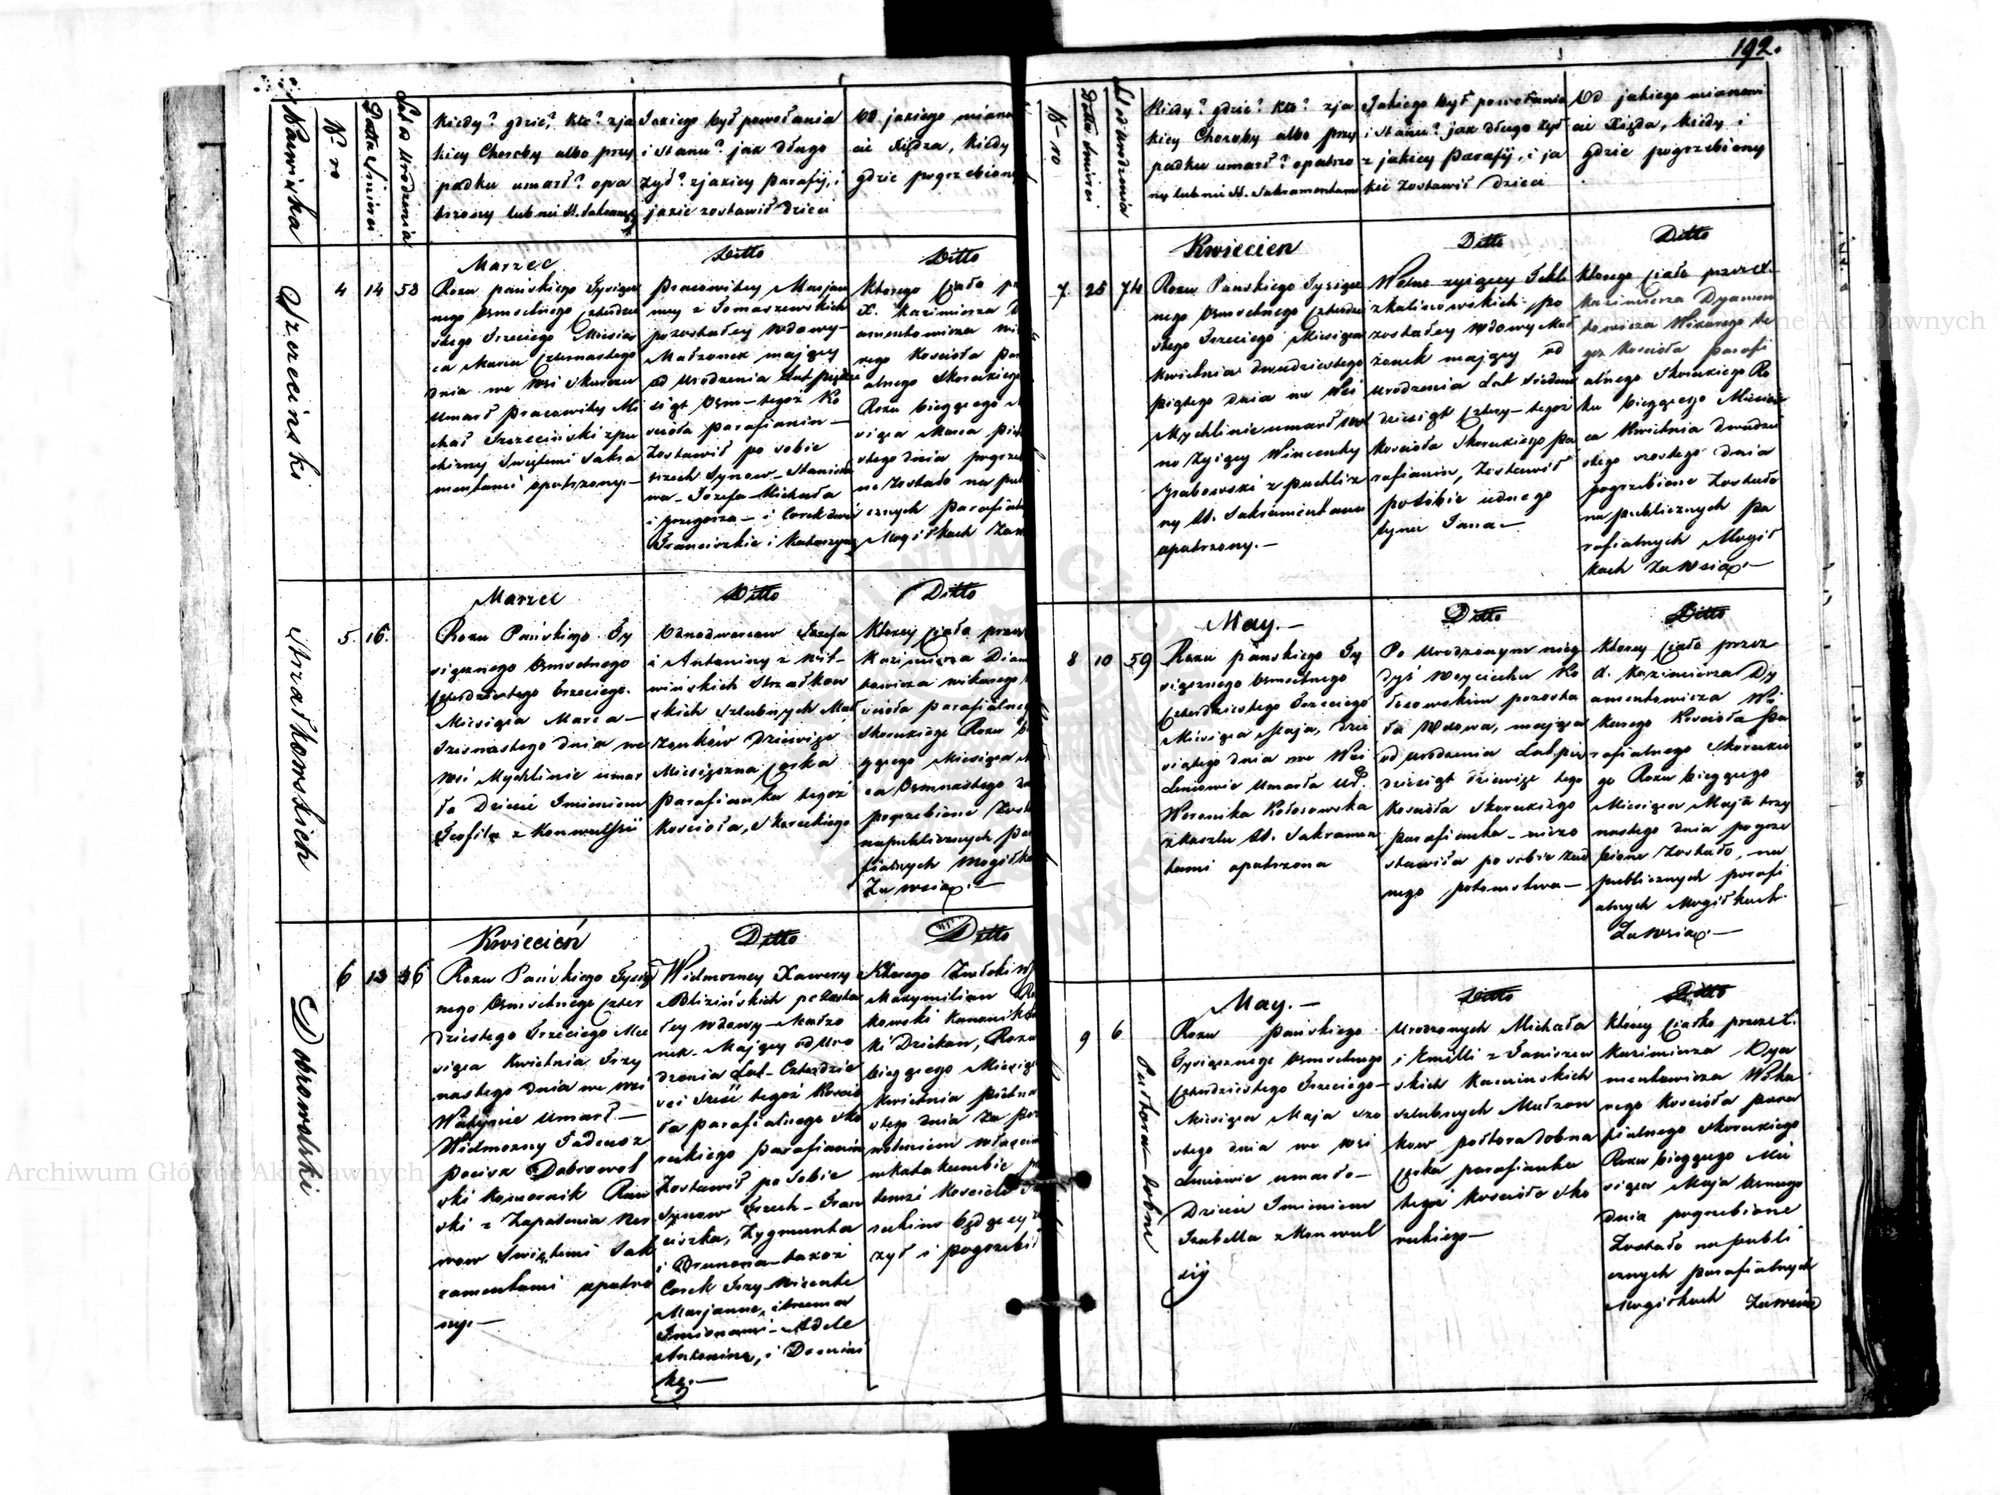 192.
Nazwiska
N-ro
Datta Śmierci
Lat od Urodzenia
Kiedy? gdzie? kto? z ja
kiey Choroby albo przy
padku umarł? opa
trzony lub nie St. Sakramen
Jakiego był powołania
i Stanu? jak długo
żył? z jakiey Parafij, i
jakie zostawił Dzieci
Od jakiego miano
cie Xiędza, kiedy
gdzie pogrzebiony
Szczeciński
4 14 58
Marzec
Roku pańskiego Tysiącz
nego Osmsetnego Czterdzie
stego Trzeciego Miesią
ca Marca Czternastego
dnia we Wsi Skurczu
Umarł Pracowity Mi
chał Szczeciński z pu
chliny Swiętemi Sakra
mentami opatrzony.—
Ditto
Pracowitey Marjan
ny z Tomaszewskich
pozostałey Wdowy—
Małżonek mający
od Urodzenia Lat pięćdzie
siąt Osm—tegoż Ko
scioła Parafianin—
Zostawił po sobie
trzech Synow—Stanisła
wa—Józefa—Michała
i Grzegorza—i Corek dwie
Franciszkę i Katarzynę
Ditto
Ktorego Ciało pr
X. Kazimierza D
amentowicza wi
rego Kościoła Par
alnego Skoreckiego
Roku bieżącego M
siąca Marca
stego dnia pogrze
ne Zostało na pub
cznych Parafial
Mogiłkach Za w
Strzałkowskich
5. 16.
Marzec
Roku Pańskiego Ty
siącznego Osmsetnego
Czterdziestego Trzeciego
Miesiąca Marca—
Szesnastego dnia we
Wsi Mychlinie umar
ło Dziecie Imieniem
Teofila z Konwulsyi
Ditto
Urodzonych Józefa
i Antoniny z Wit—
wińskich Strzałkow
skich szlubnych Mał
żonków Dziewięc
Miesięczna Corka
Parafianka tegoż
Kościoła, Skoreckiego
Ditto
Ktorey Ciało przez
Kazimierza Diam
towicza wikarego
scioła Parafialneg
Skoreckiego Roku b
żącego Miesiąca M
ca Osmnastego dn
pogrzebione Zost
na publicznych Par
fialnych Mogiłka
Za wsią.—
Dobrowolski
6 13 46
Kwiecień
Roku Pańskiego Tysiącz
nego Osmsetnego Czter
dziestego Trzeciego Mie
siąca Kwietnia Trzy
nastego dnia we wsi
Wółynie Umarł—
Wielmozny Tadeusz
Dobrowol
ski Komornik
ski z Zapalenia Ner
wow Swiętemi Sak
ramentami opatrzo
ny.—
Ditto
Wielmozney Xawery z
Blizińskich pozosta
łey wdowy—Małżo
nek—Mający od Uro
dzenia Lat—Czterdzie
sci Sześć tegoż Koscio
ła parafialnego Sko
reckiego Parafianin
Zostawił po sobie
Synow Trzech—Fran
ciszka, Zygmunta
i Brunona—takoż
Corek Trzy
Marjannę,
Imionami—Adele
Antoninę, i Domini
kę.—
Ditto
Ktorego Zwłoki W
Maxymilian
kowski Kanonik
ki Dziekan, Roku
bieżącego Miesiąca
Kwietnia Piętna
stego dnia Za poz
woleniem władz
w katakumbie p
temże Kosciele S
reckim będącey
żył i pogrzebił
N-ro
Datta śmierci
Lat od urodzenia
Kiedy? gdzie? kto? z ja
kiey Choroby albo przy
padku umarł? opatrzo
ny lub nie St. Sakramentam
Jakiego był powołania
i Stanu? jak długo żył
z jakiey Parafij, i ja
kie Zostawił Dzieci
Od jakiego mianowi
cie Xiędza, kiedy i
gdzie pogrzebiony
7. 25 74
Kwiecien
Roku Pańskiego Tysiącz
nego Osmsetnego Czterdzie
stego Trzeciego Miesiąca
Kwietnia dwudziestego
piątego dnia we Wsi
Mychlinie umarł wol
no żyjący Wincenty
Grabowski z puchliz
ny St. Sakramentami
opatrzony.—
Ditto
Wolno żyjącey Tekli
z Kalinowskich po
zostałey Wdowy Mał
żonek mający od
urodzenia Lat siedm
dziesiąt Cztery—tegoż
Kościoła Skoreckiego Pa
rafianin, Zostawił
po sobie iednego
Syna Jana—
Ditto
Ktorego Ciało przez X.
Kazimierza Dyamen
towicza Wikarego te
goz Kościoła Parafi
alnego Skoreckiego Ro
ku bieżącego Miesią
ca Kwietnia dwudzie
stego szostego dnia
pogrzebione Zostało
na publicznych Pa
rafialnych Mogił
kach Za Wsią.—
8 10 59
May.—
Roku pańskiego Ty
siącznego Osmsetnego
Czterdziestego Trzeciego
Miesiąca Maja, dzie
siątego dnia we Wsi
Leniowie Umarła Ur.
Weronika Kołosowska
z kaszlu St. Sakramen
tami opatrzona
Ditto
Po Urodzonym nieg
dyś Woyciechu Ko
łosowskim pozosta
ła Wdowa, mająca
od urodzenia Lat pięć
dziesiąt dziewięc tego
Kościoła Skoreckiego
Parafianka—niezo
stawiła po sobie żad
nego potomstwa—
Ditto
Ktorey Ciało przez
X. Kazimierza Dy
amentowicza Wi
karego Kościoła Pa
rafialnego Skoreckie
go Roku bieżącego
Miesiąca Maja trzy
nastego dnia pogrze
bione Zostało, na
publicznych parafi
alnych Mogiłkach
Za Wsią.—
9 6
Pułtora—dobne
May.—
Roku Pańskiego
Tysiącznego Osmsetnego
Czterdziestego Trzeciego—
Miesiąca Maja szo
stego dnia we wsi
Leniowie umarło—
Dziecie Imieniem
Izabella z Konwul
sij
Ditto
Urodzonych Michała
i Emilli z Janiszew
skich
szlubnych Małżon
kow połtoradobna
Corka parafianka
tegoż Kościoła Sko
reckiego—
Ditto
Ktorey Ciałko przez X.
Kazimierza Dya
mentowicza Wika
rego Kościoła para
fialnego Skoreckiego
Roku bieżącego Mie
siąca Maja Osmego
dnia pogrzebione
Zostało na publi
cznych parafialnych
Mogiłkach Zawsią
Archiwum Główne Akt Dawnych
Archiwum Główne Akt Dawnych